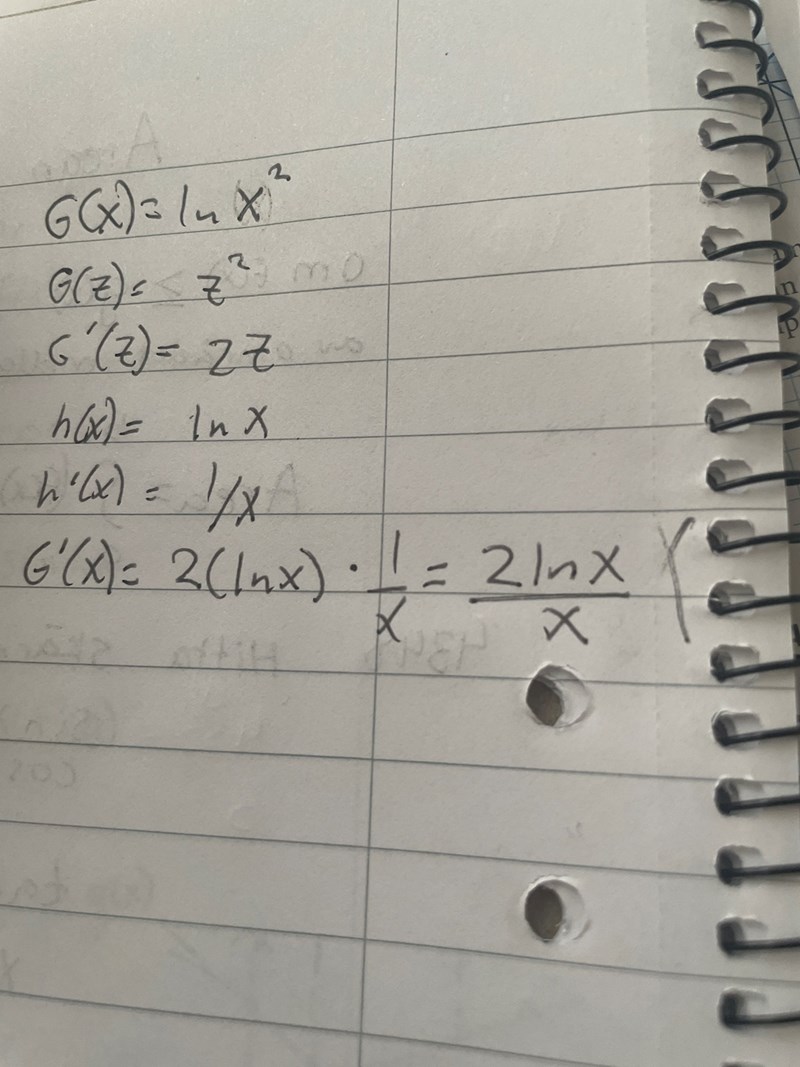 G(x) = ln x²
G(z) = z²
G'(z) = 2z
h(x) = ln x
h'(x) = 1/x
G'(x) = 2(ln x) · 1/x = 2 ln x / x